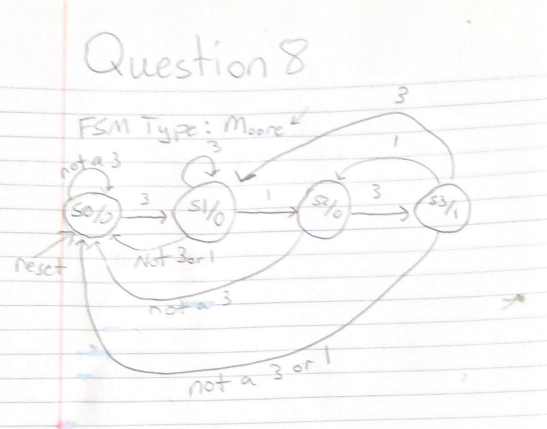 Question 8
FSM Type: Moore
3
3
1
not a 3
S0/0
3
S1/0
1
S2/0
3
S3/1
reset
Not 3 or 1
not a 3
not a 3 or 1